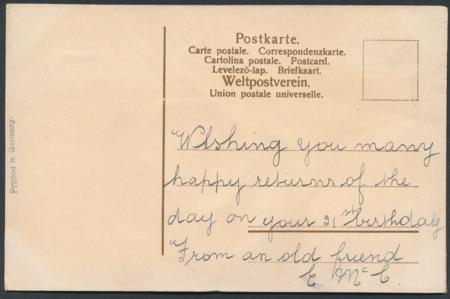 Postkarte.
Carte postale. Correspondenzkarte.
Cartolina postale. Postcard.
Levelező-lap. Briefkaart.
Weltpostverein.
Union postale universelle.
Printed in Germany.
Wishing you many
happy returns of the
day on your 21st birthday
From an old friend
E McC